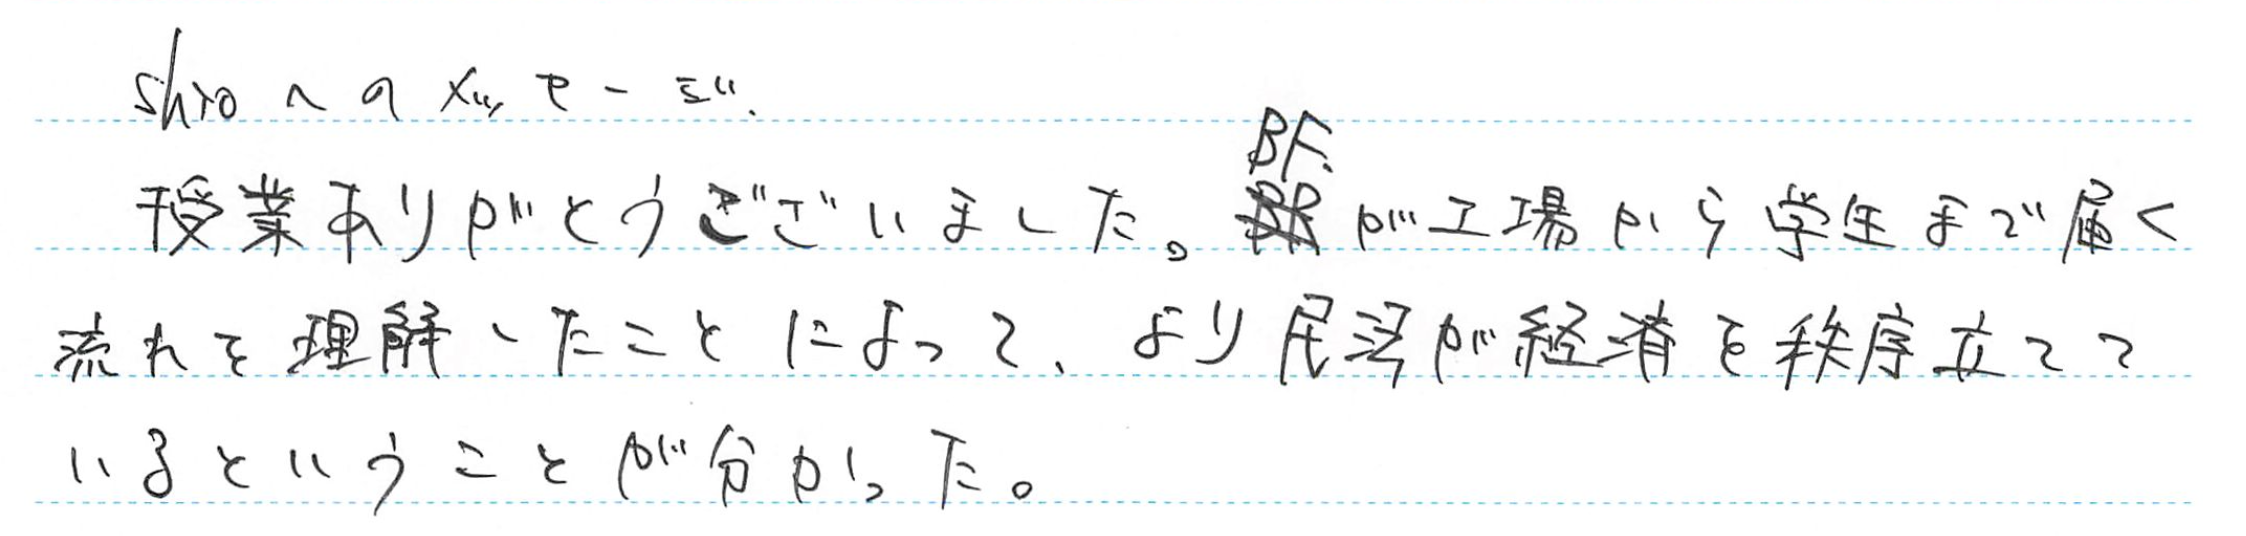 shiroへのメッセージ.
授業ありがとうございました。BF.が工場から学生まで届く
流れを理解したことによって、より民法が経済を秩序立てて
いるということが分かった。